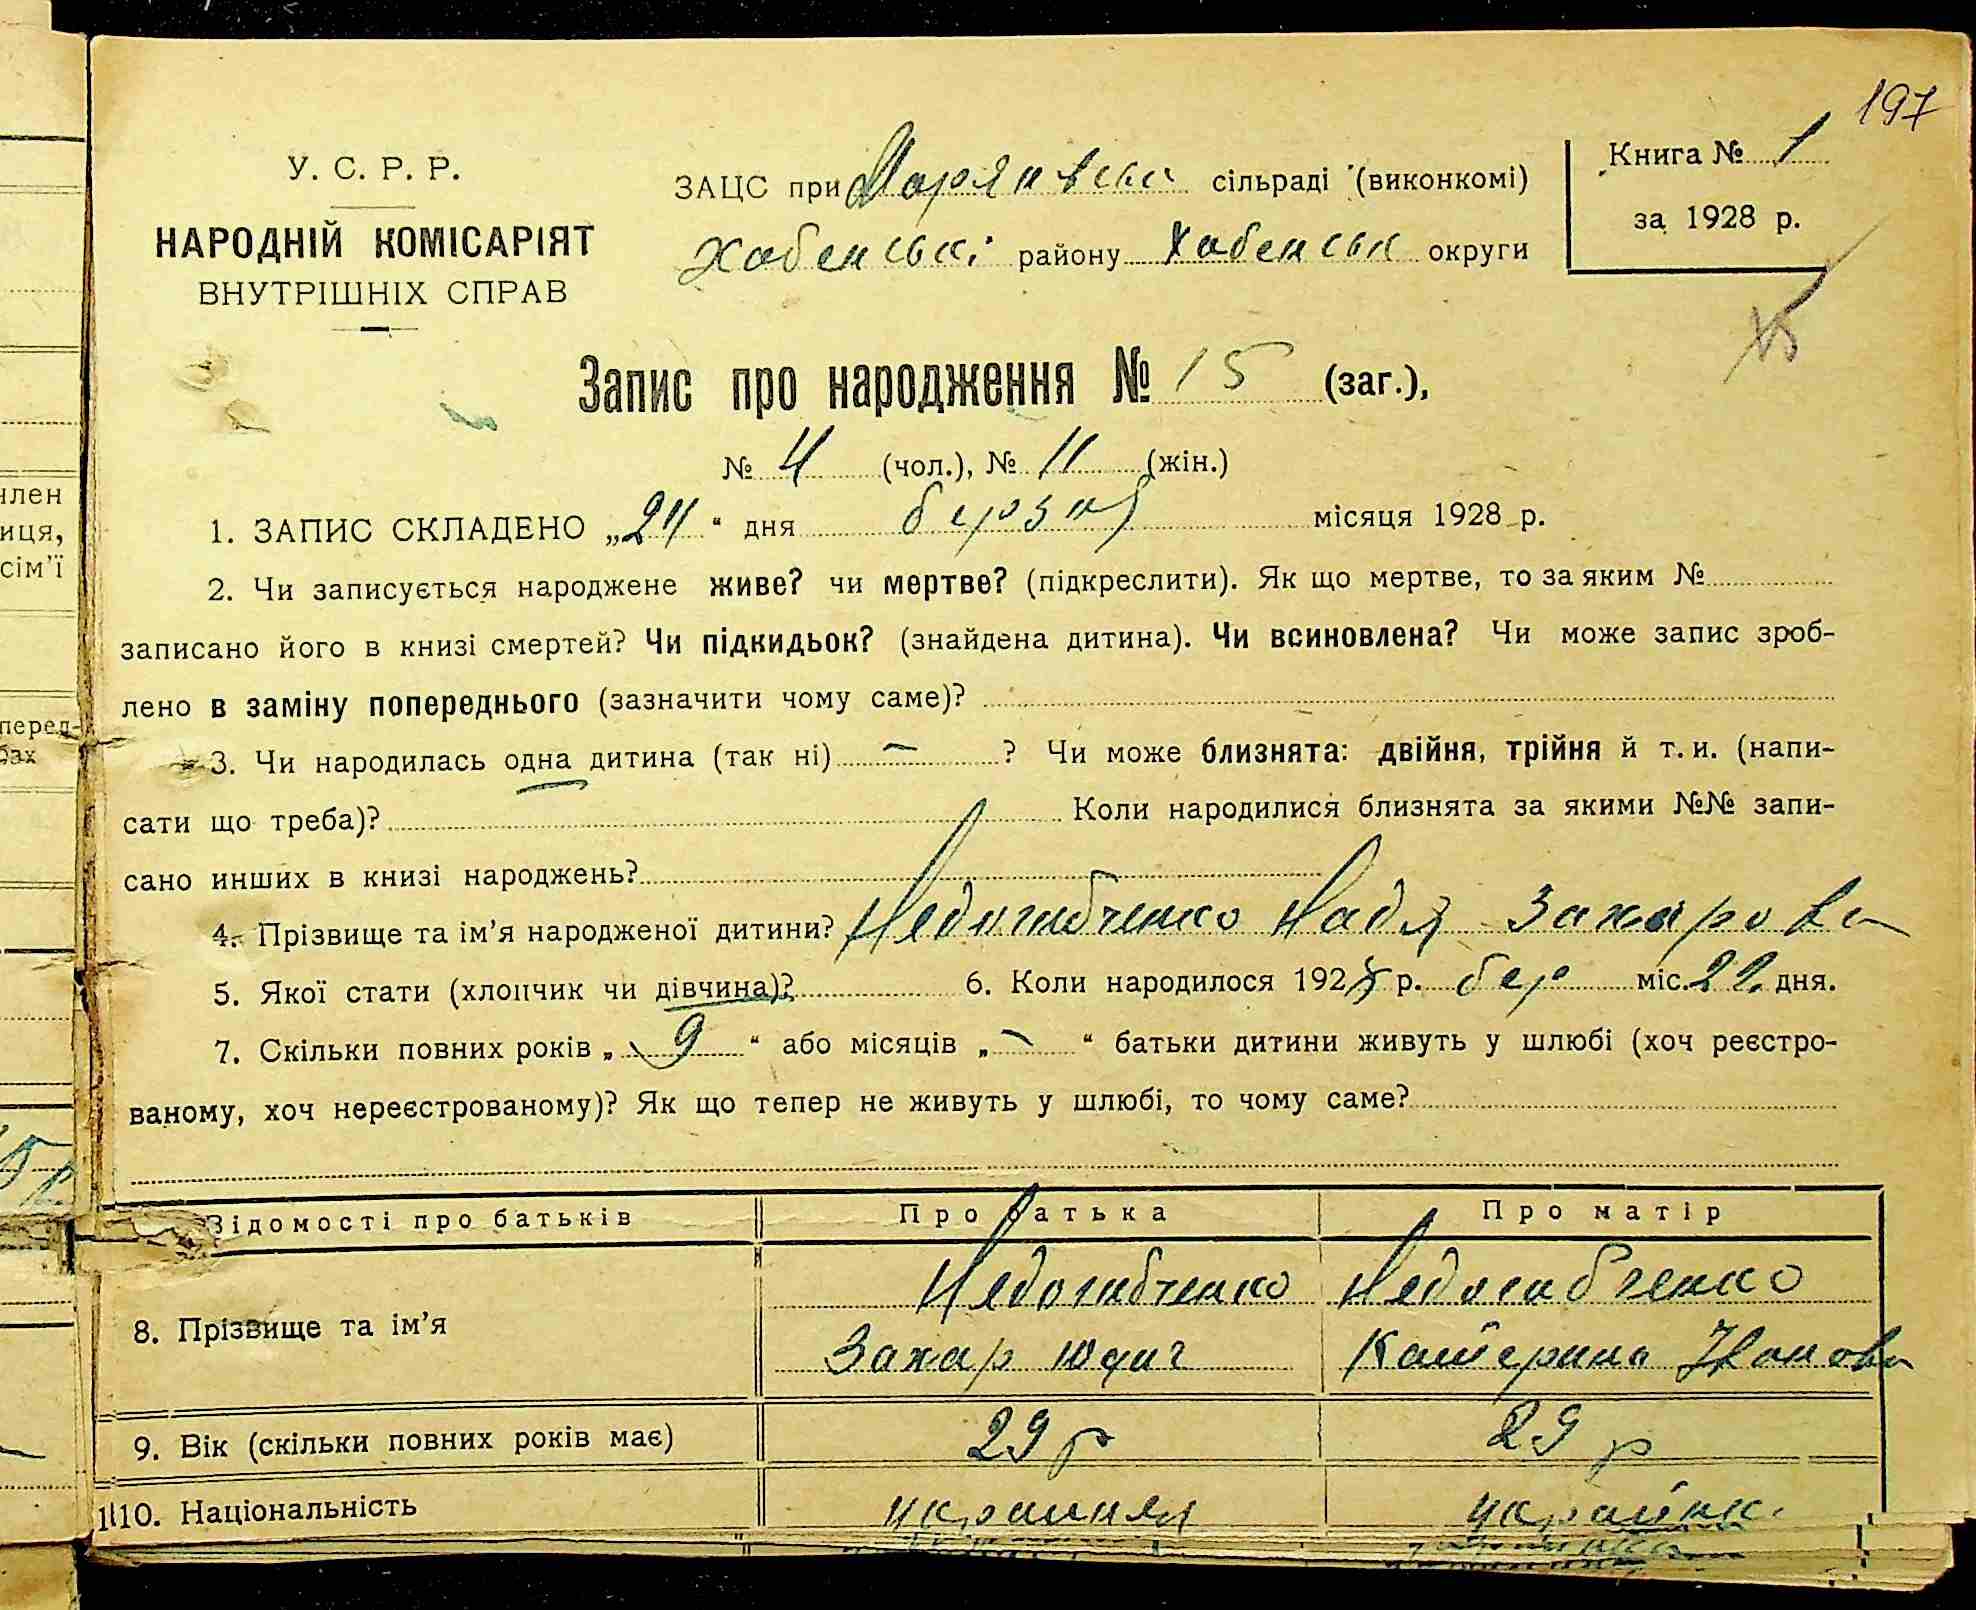 197
У. С. Р. Р.
НАРОДНІЙ КОМІСАРІЯТ
ВНУТРІШНІХ СПРАВ
ЗАЦС при Марянвські сільраді (виконкомі)
Хабенські району Хабенськ округи
Книга № 1
за 1928 р.
Запис про народження № 15 (заг.),
№ 4 (чол.), № 11 (жін.)
1. ЗАПИС СКЛАДЕНО „24“ дня березня місяця 1928 р.
2. Чи записується народжене живе? чи мертве? (підкреслити). Як що мертве, то за яким №
записано його в книзі смертей? Чи підкидьок? (знайдена дитина). Чи всиновлена? Чи може запис зроб-
лено в заміну попереднього (зазначити чому саме)?
3. Чи народилась одна дитина (так ні) — ? Чи може близнята: двійня, трійня й т. и. (напи-
сати що треба)? Коли народилися близнята за якими №№ запи-
сано инших в книзі народжень?
4. Прізвище та ім’я народженої дитини? Недогибченко Надя Захарова
5. Якої стати (хлопчик чи дівчина)? 6. Коли народилося 1928 р. бер міс. 22 дня.
7. Скільки повних років „ 9 “ або місяців „ — “ батьки дитини живуть у шлюбі (хоч реєстро-
ваному, хоч нереєстрованому)? Як що тепер не живуть у шлюбі, то чому саме?
Відомості про батьків Про батька Про матір
8. Прізвище та ім’я
Недогибченко Недогибченко
Захар Катерина
9. Вік (скільки повних років має) 29 р 29 р
10. Національність
член
иця,
сім’ї
перед-
бах